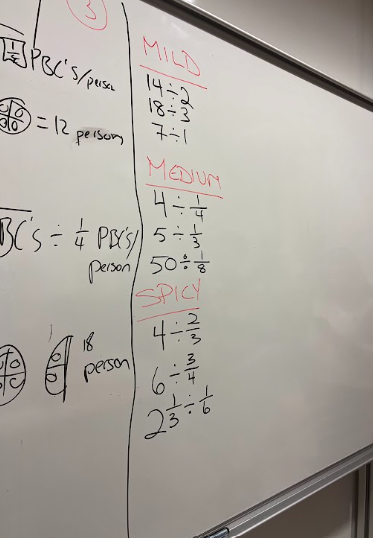 3
1/4 PBC's/person
= 12 person
BC's ÷ 1/4 PBC's/
person
18
person
MILD
14÷2
18÷3
7÷1
MEDIUM
4÷1/4
5÷1/3
50÷1/8
SPICY
4÷2/3
6÷3/4
2 1/3÷1/6